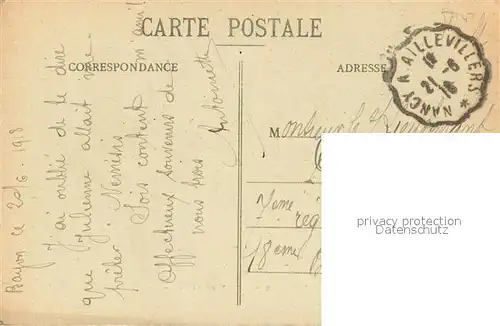 CARTE POSTALE
CORRESPONDANCE
ADRESSE
NANCY A AILLEVILLERS
21 - 6
18
Bayon le 20/6 1918
J'ai oublié de te dire
que Julienne allait me
prêter Nemésis
Sois content mon ami!
Affectueux souvenirs de
nous trois
Antoinette
Monsieur le
7ème rég
18ème
privacy protection
Datenschutz